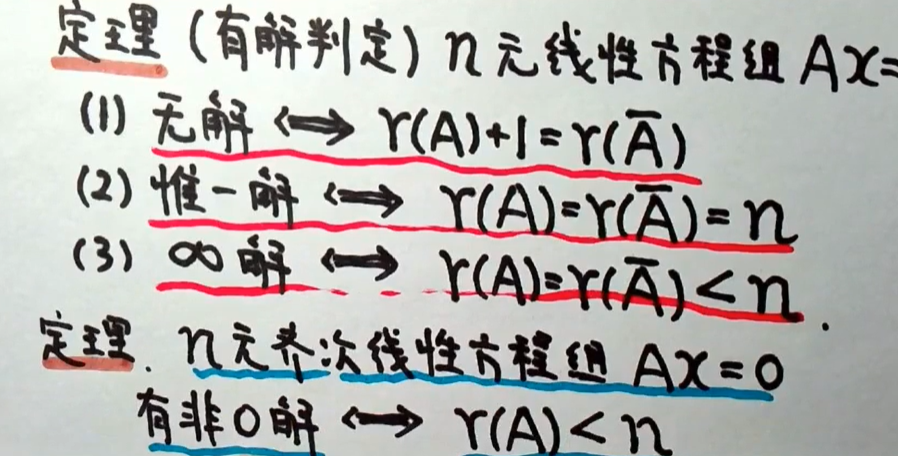 定理(有解判定)n元线性方程组 Ax=
(1) 无解 ⟺ r(A)+1=r(Ā)
(2) 惟一解 ⟺ r(A)=r(Ā)=n
(3) ∞解 ⟺ r(A)=r(Ā)<n.
定理. n元齐次线性方程组 Ax=0
有非0解 ⟺ r(A)<n